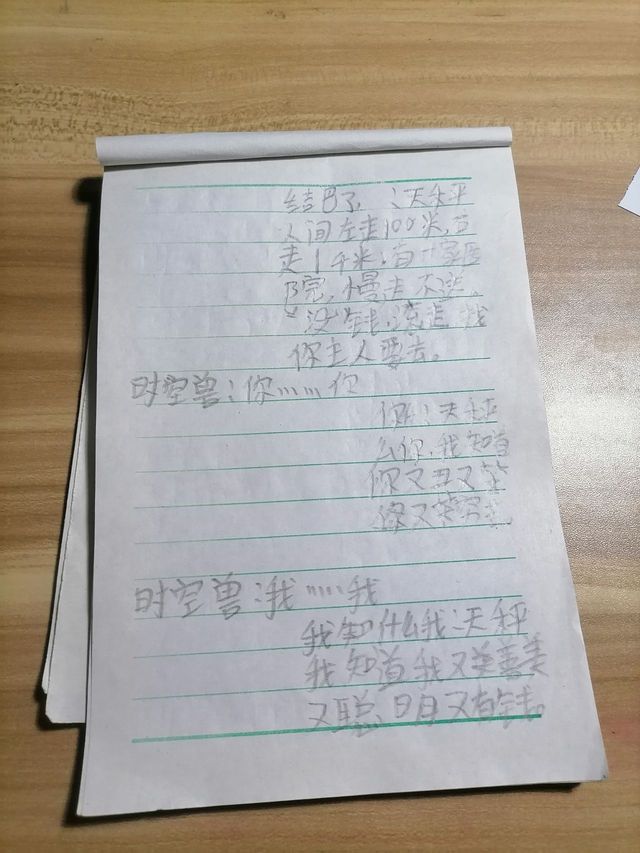 结巴了：天秤
人间左走100米，右
走1千米，有十家医
院，慢走不送。
没钱，滚去找
你主人要去。
时空兽：你……你
你：天秤
么你，我知道
你又丑又笨
你又
时空兽：我……我
我知什么我：天秤
我知道我又善美
又聪明又有钱。